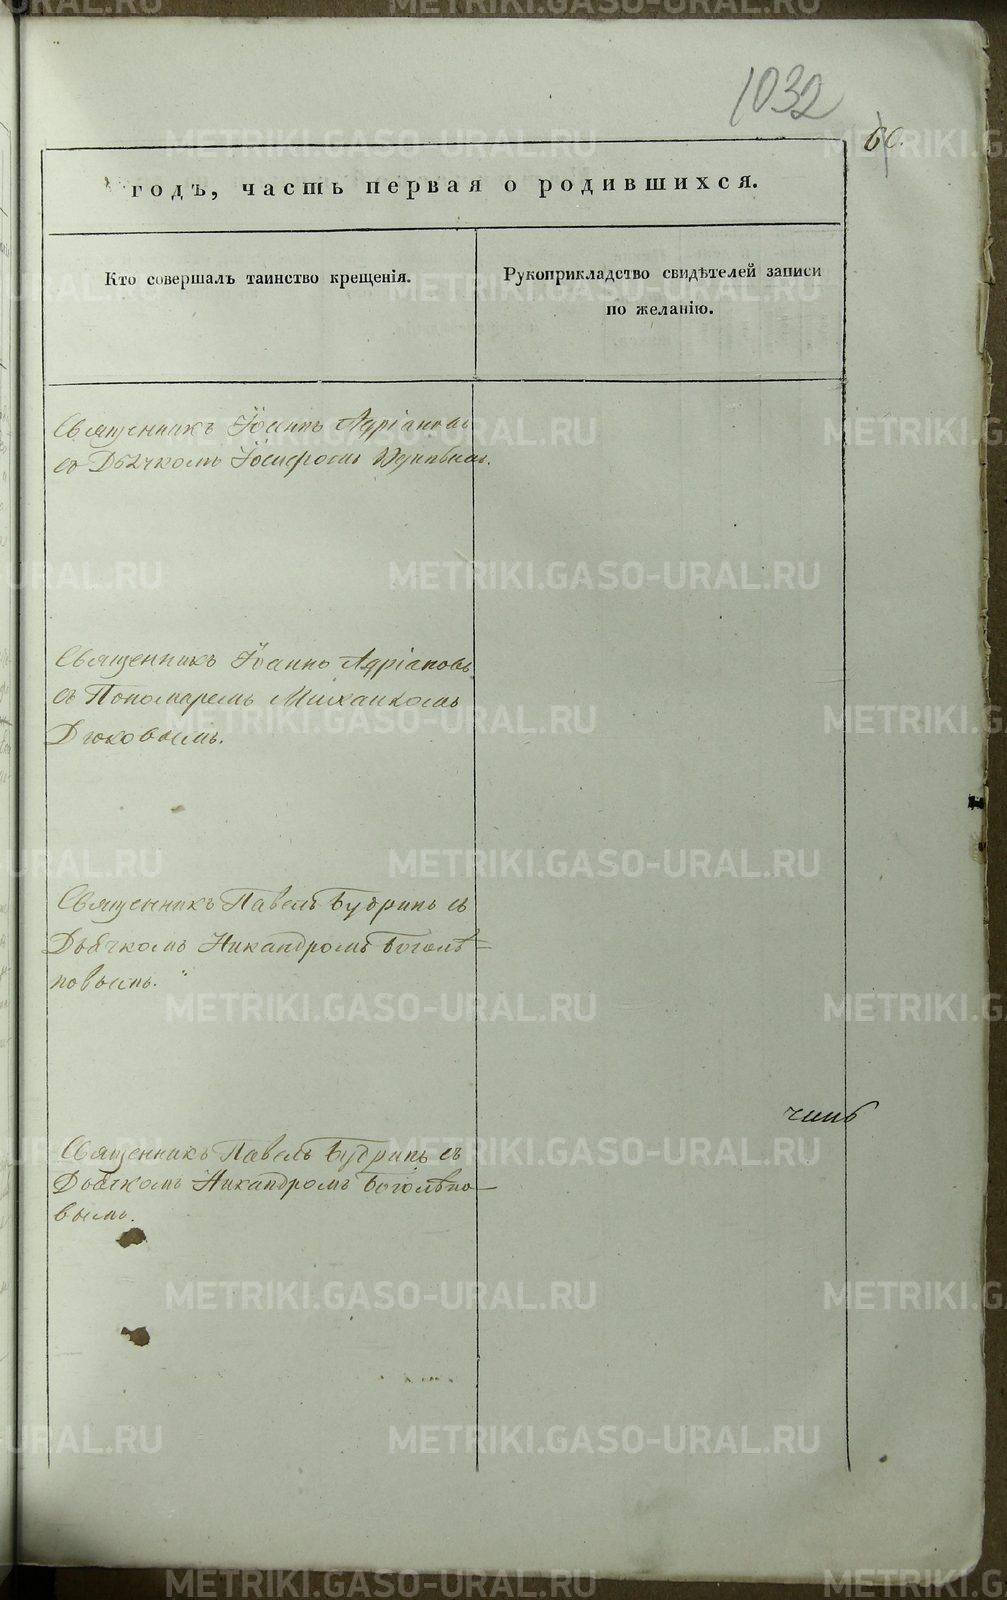 1032
60.
годъ, часть первая о родившихся.
Кто совершалъ таинство крещенія.
Рукоприкладство свидѣтелей записи
по желанію.
Священникъ Іоаннъ Адріановъ
съ Дьячкомъ Іосифомъ
Священникъ Іоаннъ Адріановъ
съ Пономаремъ Михаиломъ
Дюковымъ.
Священникъ Павелъ Бубринъ съ
Дьячкомъ Никандромъ Боголѣ=
повымъ.
Священникъ Павелъ Бубринъ съ
Дьячкомъ Никандромъ Боголѣпо—
вымъ.
METRIKI.GASO-URAL.RU